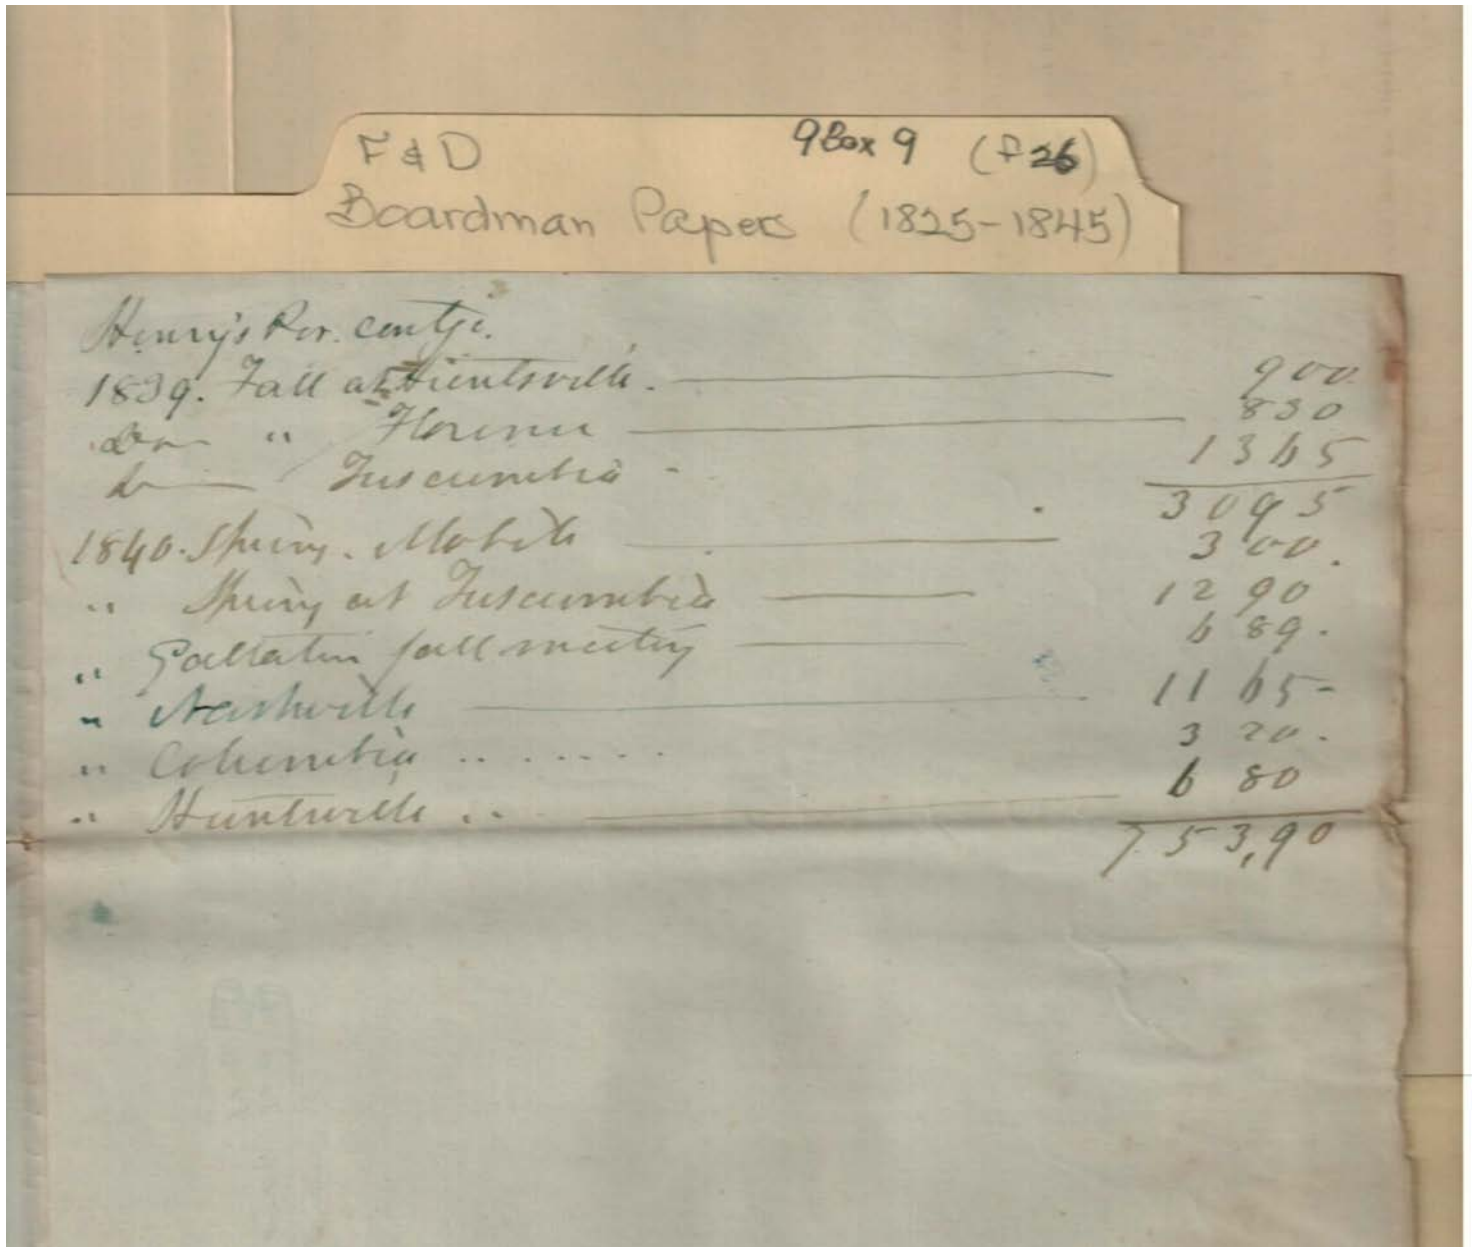 F & D 9 Box 9 (f 26)
Boardman Papers (1825-1845)
Henry's Per. centge.
1839. Fall at Huntsville. 900
Do " Florence 830
Do Tuscumbia - 1365
3095
1840. Spring. Mobile 300.
" Spring at Tuscumbia 1290
" Gallatin fall meeting 689.
" Nashville 1165-
" Columbia .. . . . . . 320.
" Huntsville .. 680
753,90